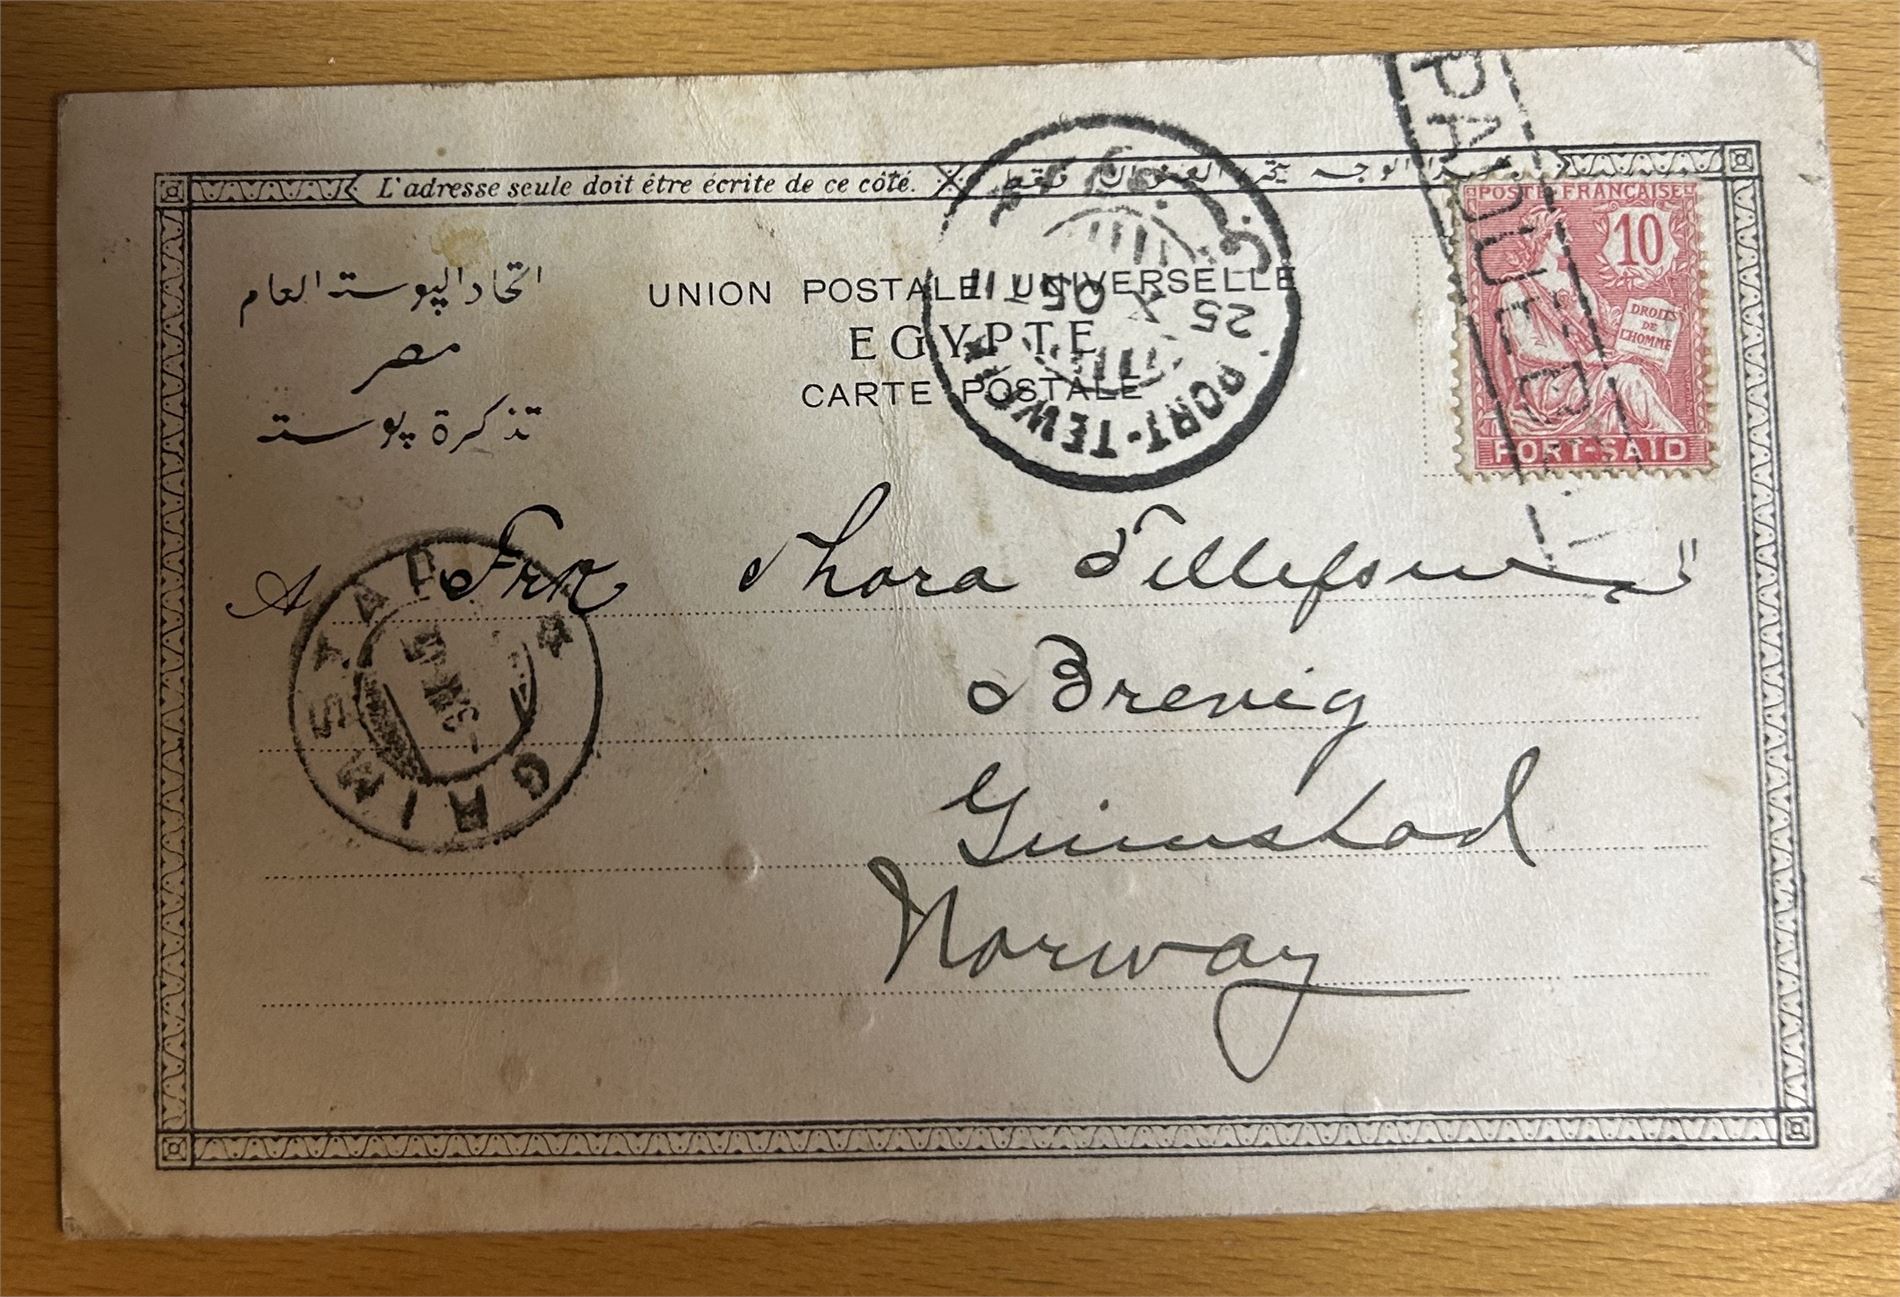 PAQUEBOT
L'adresse seule doit être écrite de ce côté.
الوجه العنوان فقط
POSTE FRANÇAISE
10
DROITS
DE
L'HOMME
PORT-SAID
اتحاد البوسته العام
مصر
تذكرة بوسته
UNION POSTALE UNIVERSELLE
EGYPTE
CARTE POSTALE
25 X 05
PORT-TEWFIK
A Fra Thora Tellefsen
Brevig
Grimstad
Norway
GRIMSTAD